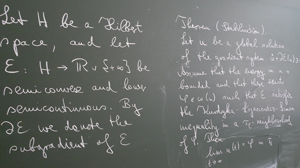 Let H be a Hilbert
space, and let
E: H → ℝ ∪ {+∞} be
semiconvex and lower
semicontinuous. By
∂E we denote the
subgradient of E
Theorem
Let u be a global solution
of the gradient system
Assume that the energy is
bounded and that there exists
φ ∈ ω(u) such that E satisfies
the Kurdyka Łojasiewicz Simon
inequality in a neighborhood
of φ. Then
lim u(t) = φ